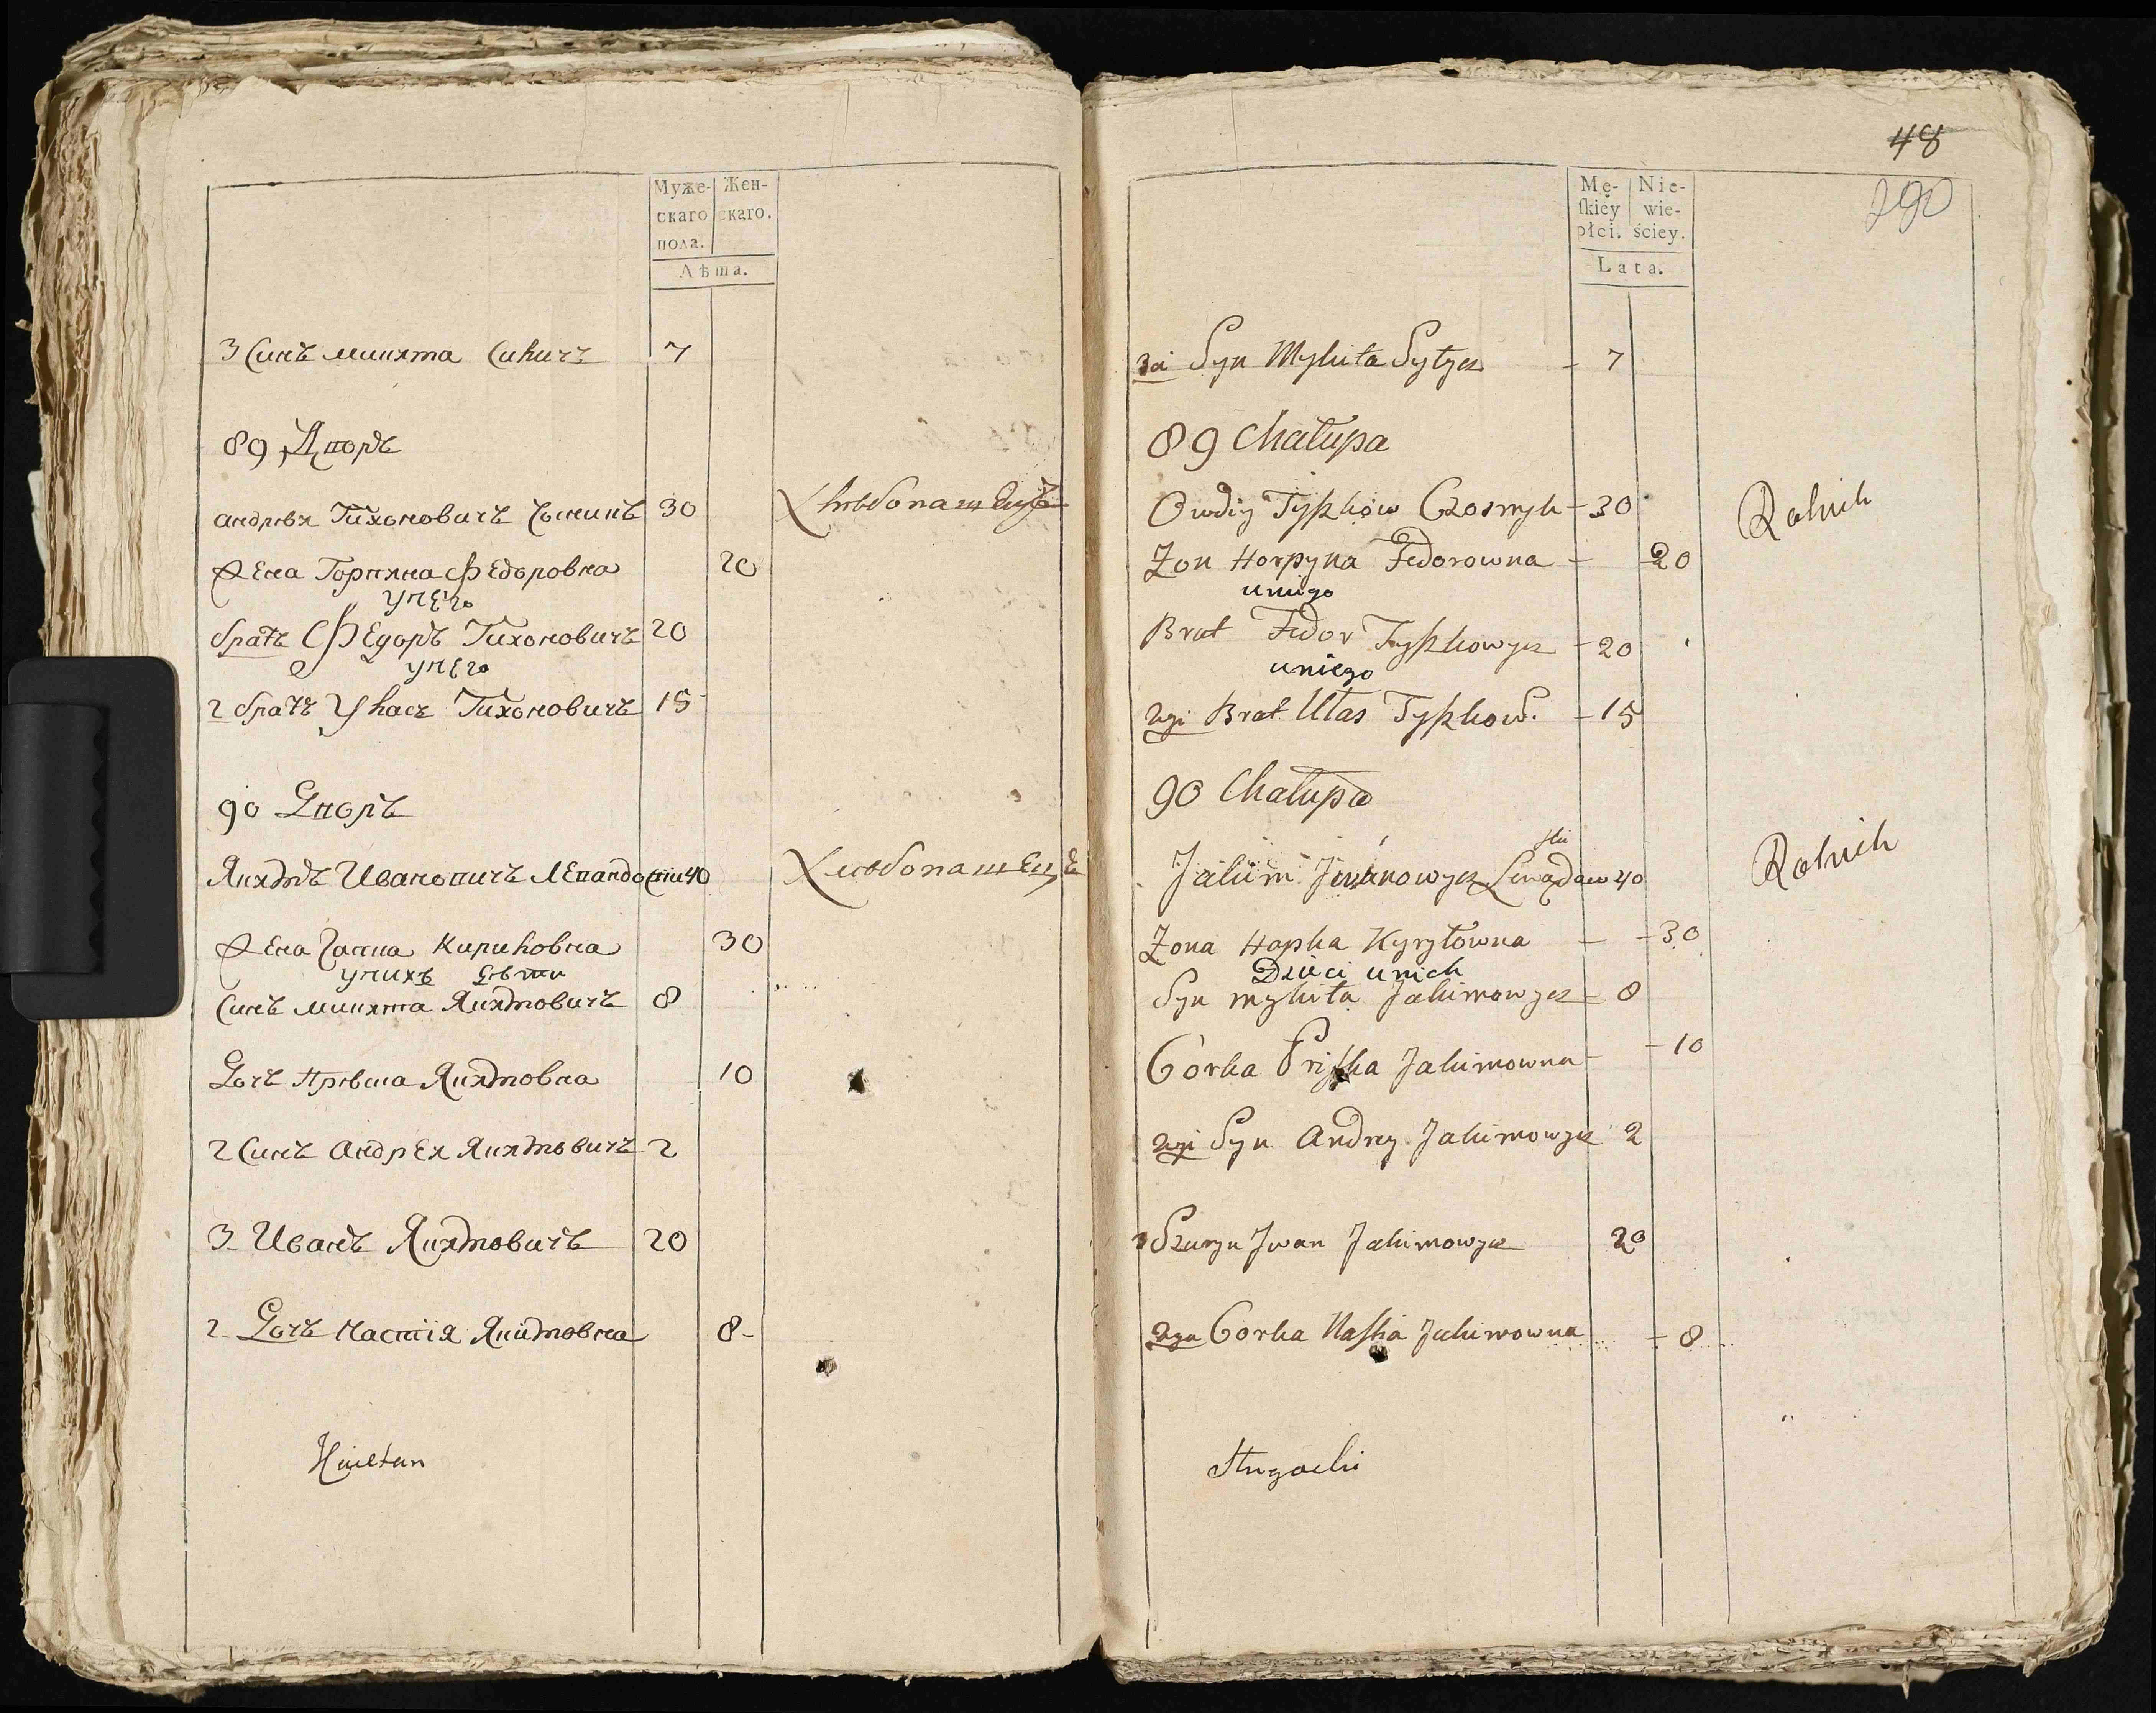 Муже- Жен-
скаго скаго.
пола.
Лѣта.
3 Синъ микита
7
89 Дворъ
Тихоновичъ
30
Хлѣбопашецъ
жена Горпина Федоровна
20
унего
братъ Федоръ Тихоновичъ 20
унего
2 братъ Тихоновичъ 15
90 Дворъ
Якимъ Ивановичъ
40
Хлѣбопашецъ
жена Гапка Кириловна
30
унихъ дѣти
Синъ микита Якимовичъ 8
Дочъ Якимовна
10
2 Синъ Андрей Якимовичъ 2
3 Иванъ Якимовичъ 20
2 Дочъ Настія Якимовна
8
48
290
Mę- Nie-
ſkiey wie-
płci. ściey.
Lata.
3ci Syn Mykita Sylycz - 7
89 Chałupa
Owdiy Tyszkow - 30
Rolnik
Zon Horpyna Fedorowna - 20
uniego
Brat Fedor Tyszkowycz - 20
uniego
2gi Brat Ułas Tyszkow. - 15
90 Chałupa
ski
Jakim Iwanowycz 40
Rolnik
Zona Hapka Kyryłowna - 30
Dzieci unich
Syn mykita Jakimowycz - 8
Corka Priska Jakimowna - 10
2gi Syn Andrey Jakimowycz 2
3 Iwan Jakimowycz 20
2ga Corka Naſtia Jakimowna - 8